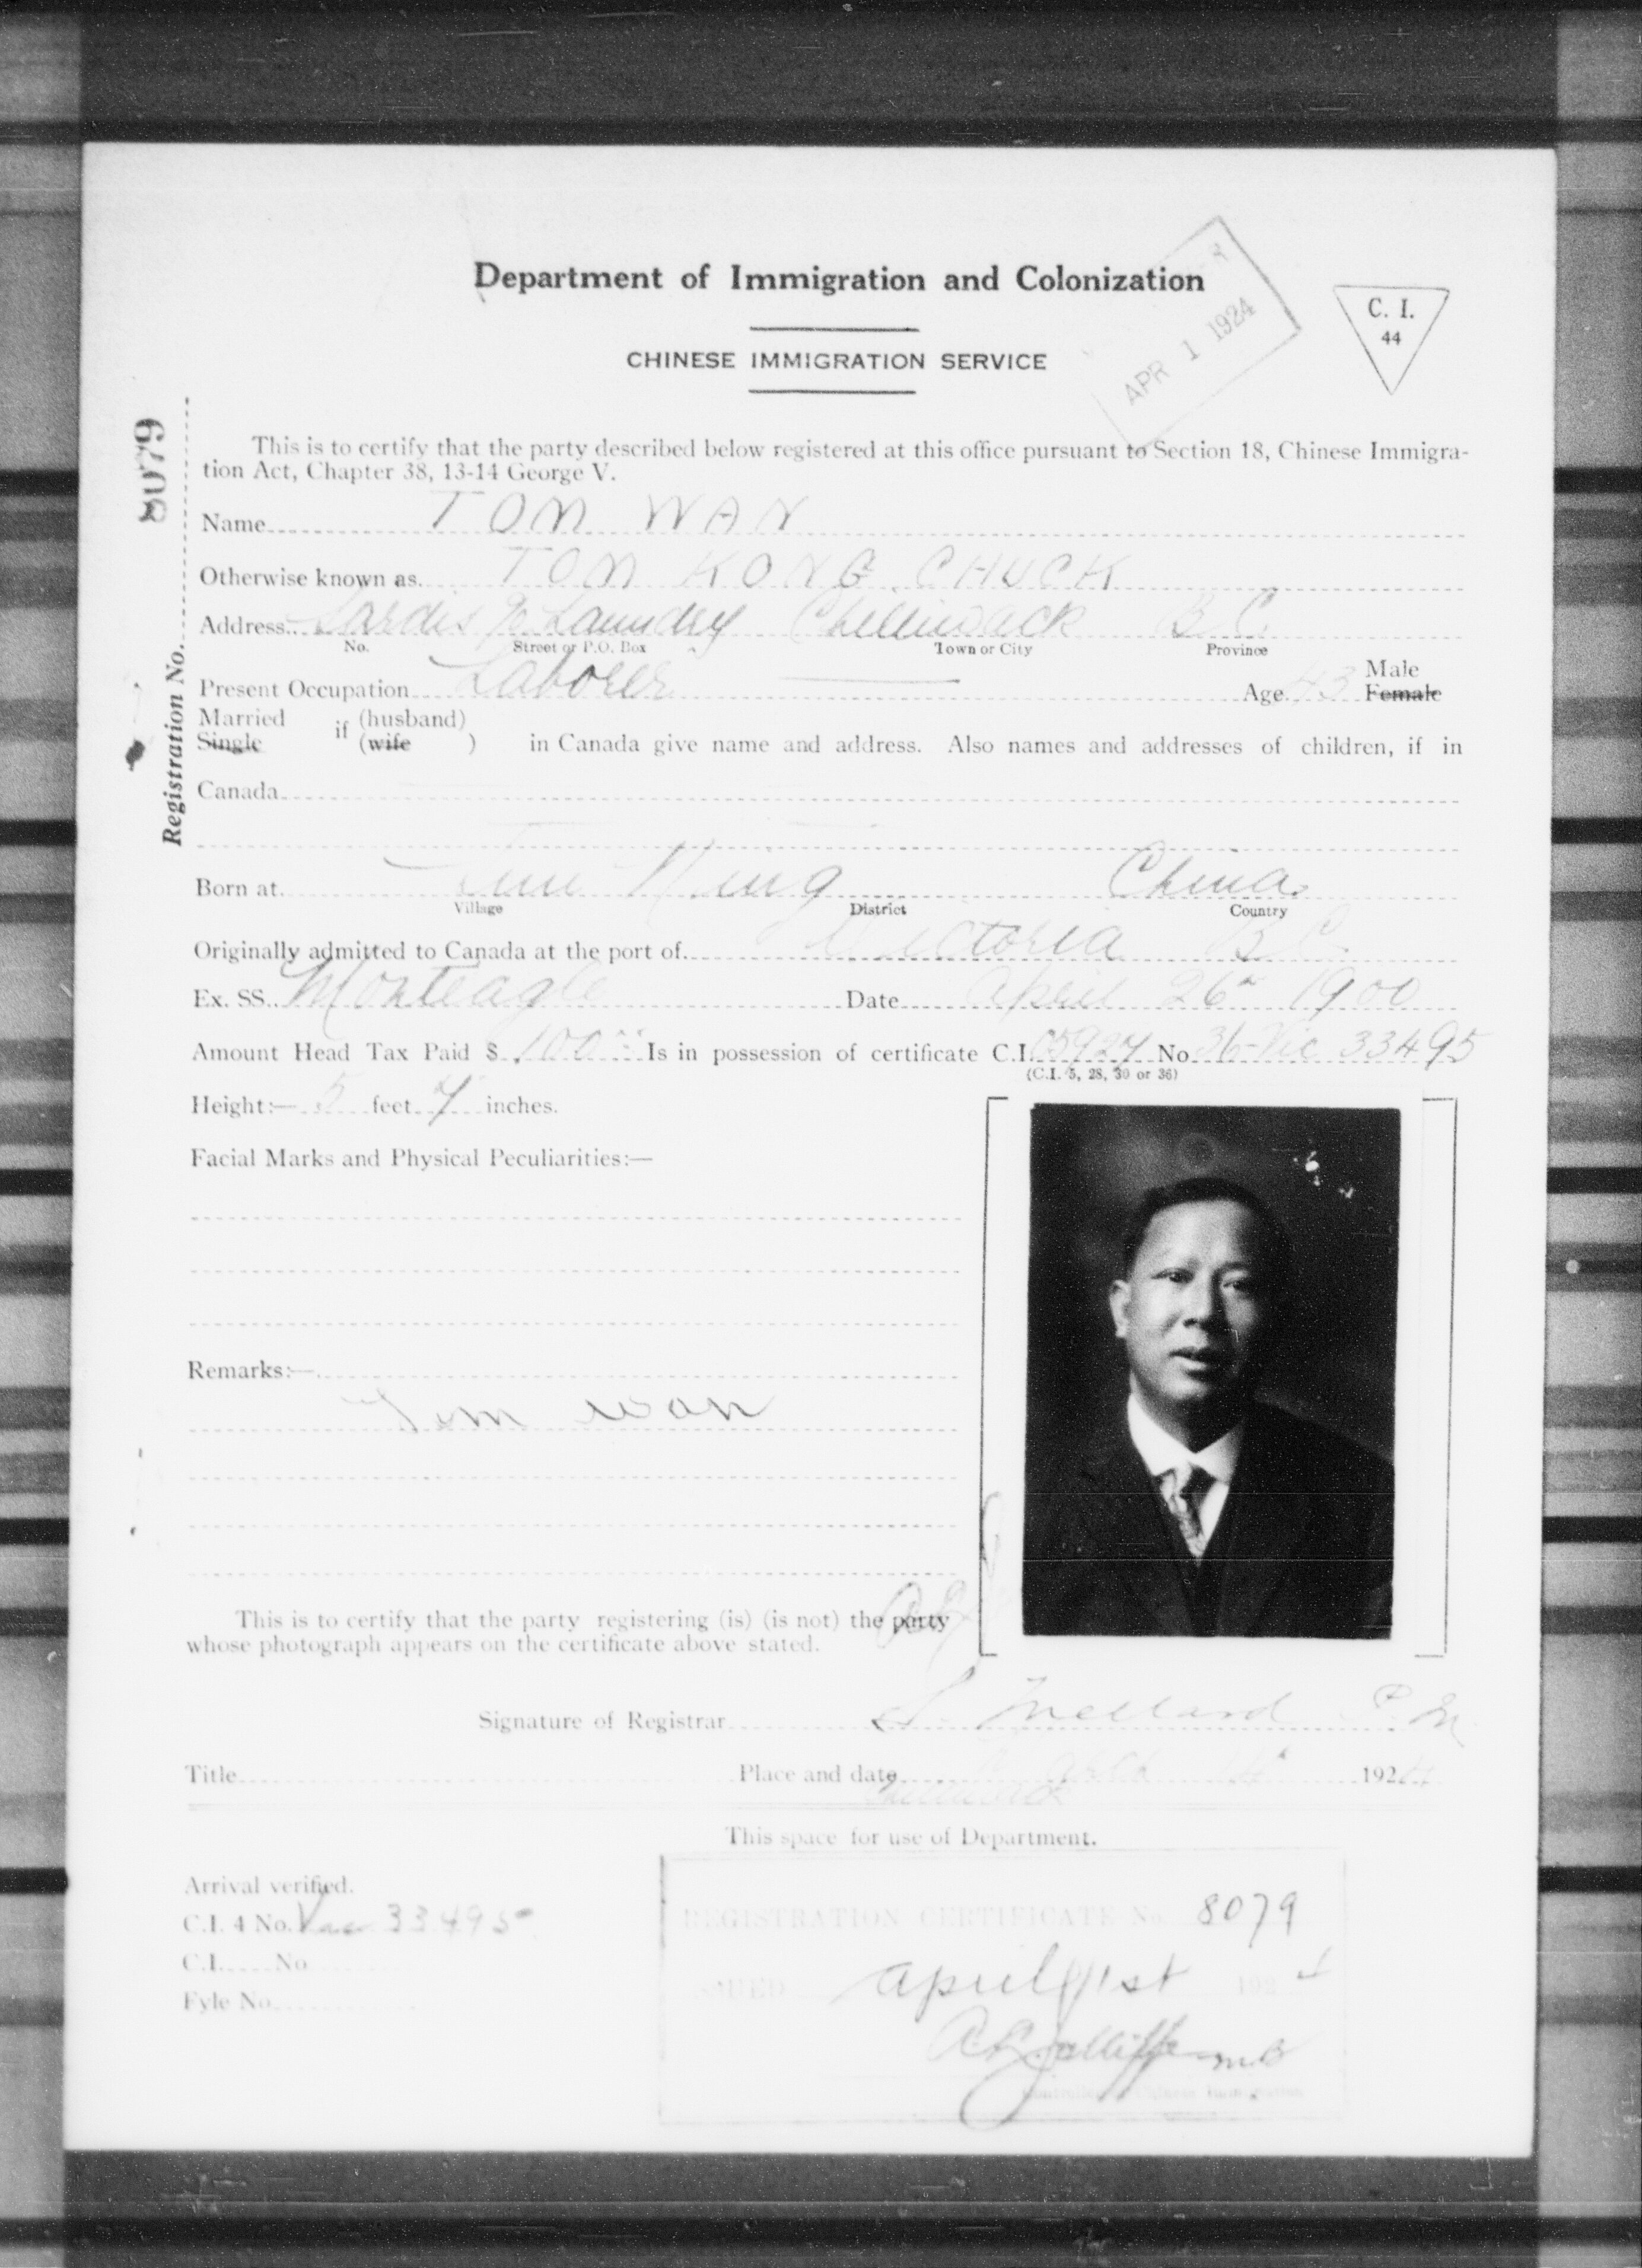 Department of Immigration and Colonization
APR 1 1924
C. I.
44
CHINESE IMMIGRATION SERVICE
Registration No. 8079
This is to certify that the party described below registered at this office pursuant to Section 18, Chinese Immigra-
tion Act, Chapter 38, 13-14 George V.
Name TOM WAN
Otherwise known as. TOM KONG CHUCK
Address Sardis % Laundry Chilliwack B.C.
No. Street or P.O. Box Town or City Province
Present Occupation Laborer Age 43 Male Female
Married Single if (husband) (wife ) in Canada give name and address. Also names and addresses of children, if in
Canada
Born at Ning China
Village District Country
Originally admitted to Canada at the port of Victoria B.C.
Ex. SS. Monteagle Date April 26th 1900
Amount Head Tax Paid $ 100 Is in possession of certificate C.I. 05927 No 36-Vic 33495
(C.I. 5, 28, 30 or 36)
Height:— 5 feet 7 inches.
Facial Marks and Physical Peculiarities:—
Remarks:—
Tom wan
This is to certify that the party registering (is) (is not) the party
whose photograph appears on the certificate above stated.
Signature of Registrar
Title Place and date Chilliwack 1924
This space for use of Department.
Arrival verified.
C.I. 4 No. 33495
C.I. No
Fyle No.
REGISTRATION CERTIFICATE No. 8079
ISSUED april 1st 1924
Controller of Chinese Immigration